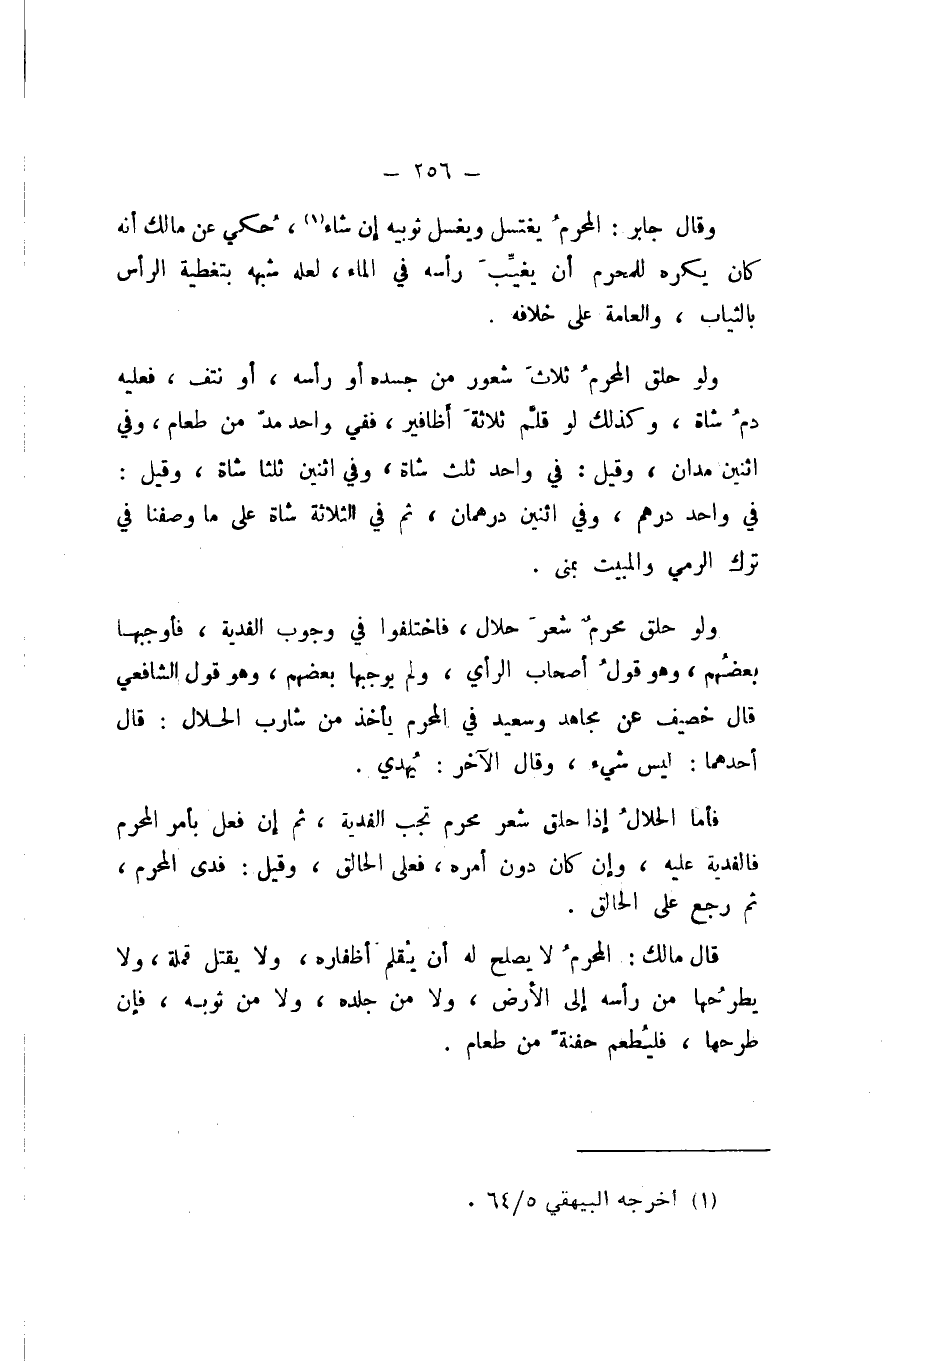 — ٢٥٦ —
وقال جابر : المحرمُ يغتسل ويغسل ثوبيه إن شاء(١) ، حُكي عن مالك أنه
كان يكره للمحرم أن يغيِّبَ رأسه في الماء ، لعله شبهه بتغطية الرأس
بالثياب ، والعامة على خلافه .
ولو حلق المحرمُ ثلاثَ شعور من جسده أو رأسه ، أو نتف ، فعليه
دمُ شاة ، وكذلك لو قلَّم ثلاثةَ أظافير ، ففي واحد مدّ من طعام ، وفي
اثنين مدان ، وقيل : في واحد ثلث شاة ، وفي اثنين ثلثا شاة ، وقيل :
في واحد درهم ، وفي اثنين درهمان ، ثم في الثلاثة شاة على ما وصفنا في
ترك الرمي والمبيت بمنى .
ولو حلق محرمٌ شعرَ حلال ، فاختلفوا في وجوب الفدية ، فأوجبها
بعضُهم ، وهو قولُ أصحاب الرأي ، ولم يوجبها بعضهم ، وهو قول الشافعي
قال خصيف عن مجاهد وسعيد في المحرم يأخذ من شارب الحلال : قال
أحدهما : ليس شيء ، وقال الآخر : يُهدي .
فأما الحلالُ إذا حلق شعر محرم تجب الفدية ، ثم إن فعل بأمر المحرم
فالفدية عليه ، وإن كان دون أمره ، فعلى الحالق ، وقيل : فدى المحرم ،
ثم رجع على الحالق .
قال مالك : المحرمُ لا يصلح له أن يُقلم أظفاره ، ولا يقتل قملة ، ولا
يطرحُها من رأسه إلى الأرض ، ولا من جلده ، ولا من ثوبه ، فإن
طرحها ، فليُطعم حفنةً من طعام .
(١) أخرجه البيهقي ٦٤/٥ .